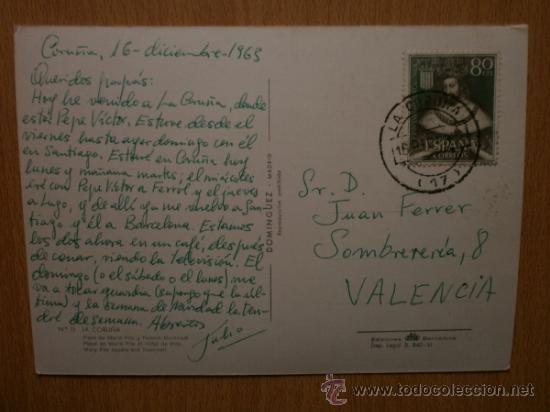 Coruña, 16-diciembre-1963
Queridos papás:
Hoy he venido a La Coruña, donde
está Pepe Víctor. Estuve desde el
viernes hasta ayer domingo con él
en Santiago. Estaré en Coruña hoy
lunes y mañana martes; el miércoles
iré con Pepe Víctor a Ferrol y el jueves
a Lugo, y de allí ya me vuelvo a San-
tiago y él a Barcelona. Estamos
los dos ahora en un café, después
de cenar, viendo la televisión. El
domingo (o el sábado o el lunes) me
va a tocar guardia (supongo que la úl-
tima) y la semana de Navidad la ten-
dré de semana. Abrazos
Julio
Nº 11 LA CORUÑA
Plaza de María Pita y Palacio Municipal
Place de María Pita et Hôtel de Ville
María Pita square and Townhall
DOMINGUEZ - MADRID
Reproducción prohibida
80
ESPAÑA
CORREOS
LA CORUÑA
(17)
Sr. D.
Juan Ferrer
Sombrerería, 8
VALENCIA
Ediciones Barcelona
Dep. Legal B.
todocoleccion.net